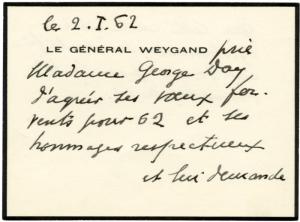 le 2.I.62
LE GÉNÉRAL WEYGAND prie
Madame George Day
d'agréer ses vœux fer-
vents pour 62 et ses
hommages respectueux
et lui demande